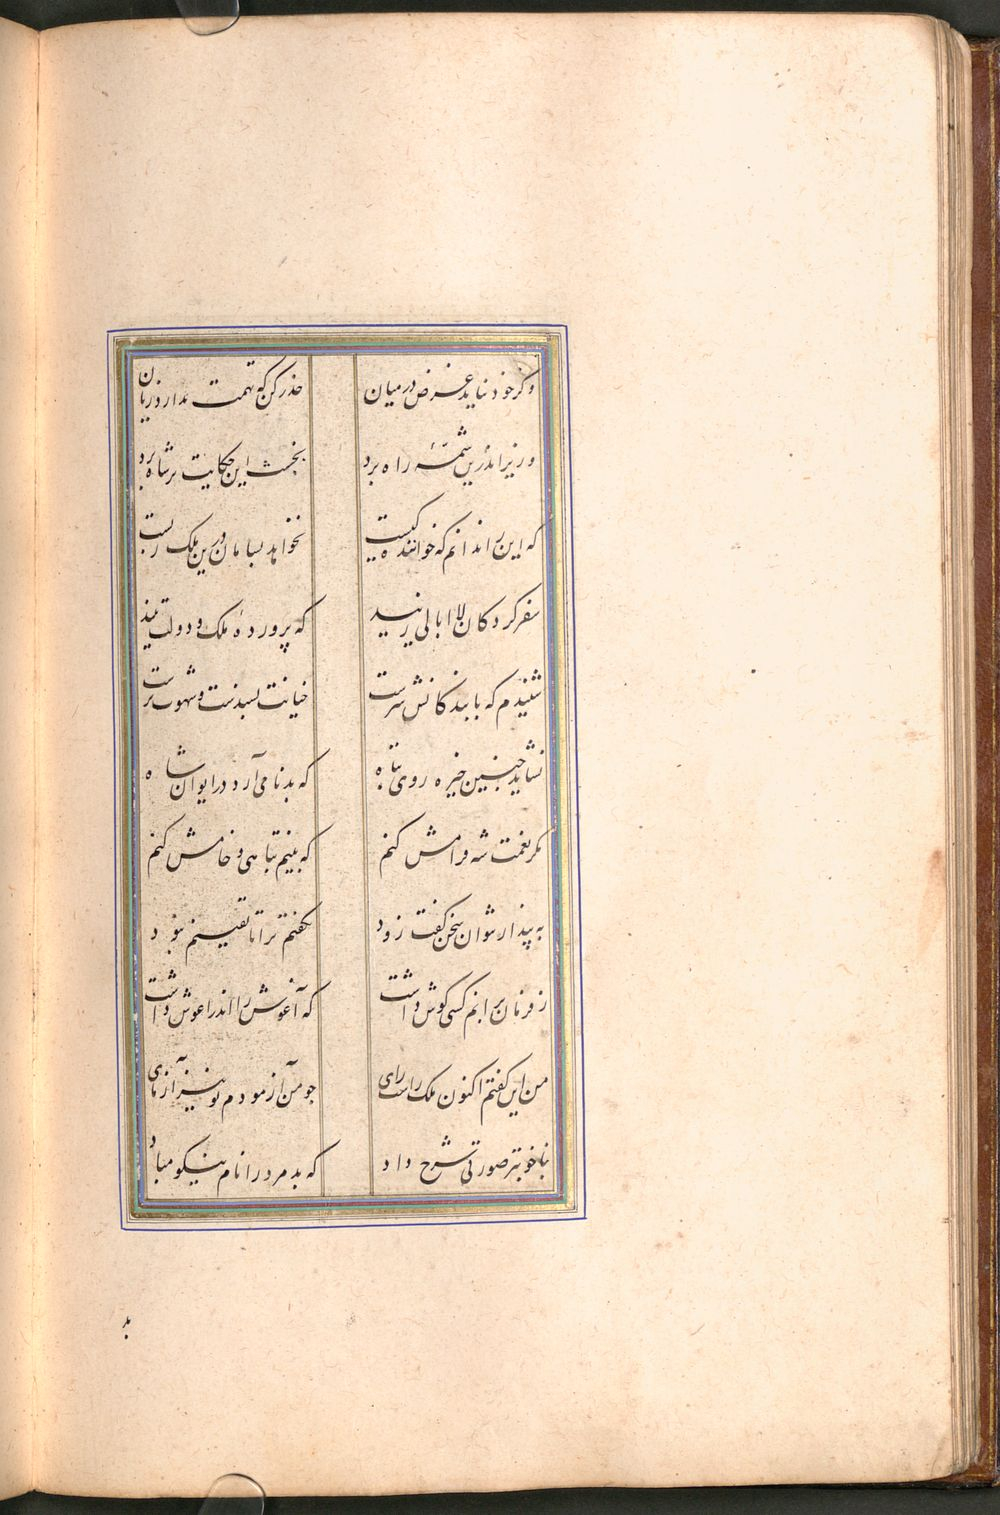 وکر خود نباید غرض در میان
حذر کن که تهمت ندارد زیان
وزیر اندرین شمهٔ راه برد
بخبث این حکایت بر شاه برد
که این را ندانم که خوانند کیست
نخواهد بسامان درین ملک زیست
سفر کردکان لاابالی زیند
که پروردهٔ ملک و دولت نیند
شنیدم که با بندکانش سرست
خیانت پسندست و شهوت پرست
نشاید چنین خیره روی تباه
که بدنامی آرد در ایوان شاه
مکر نعمت شه فرامش کنم
که بینم تباهی و خامش کنم
به پندار نتوان سخن کفت زود
نکفتم ترا تا یقینم نبود
ز فرمان برانم کسی کوش داشت
که آغوش را اندر اغوش داشت
من این کفتم اکنون ملک راست رای
چو من آزمودم تو نیز آزمای
بناخوبتر صورتی شرح داد
که بد مرد را نام نیکو مباد
بد